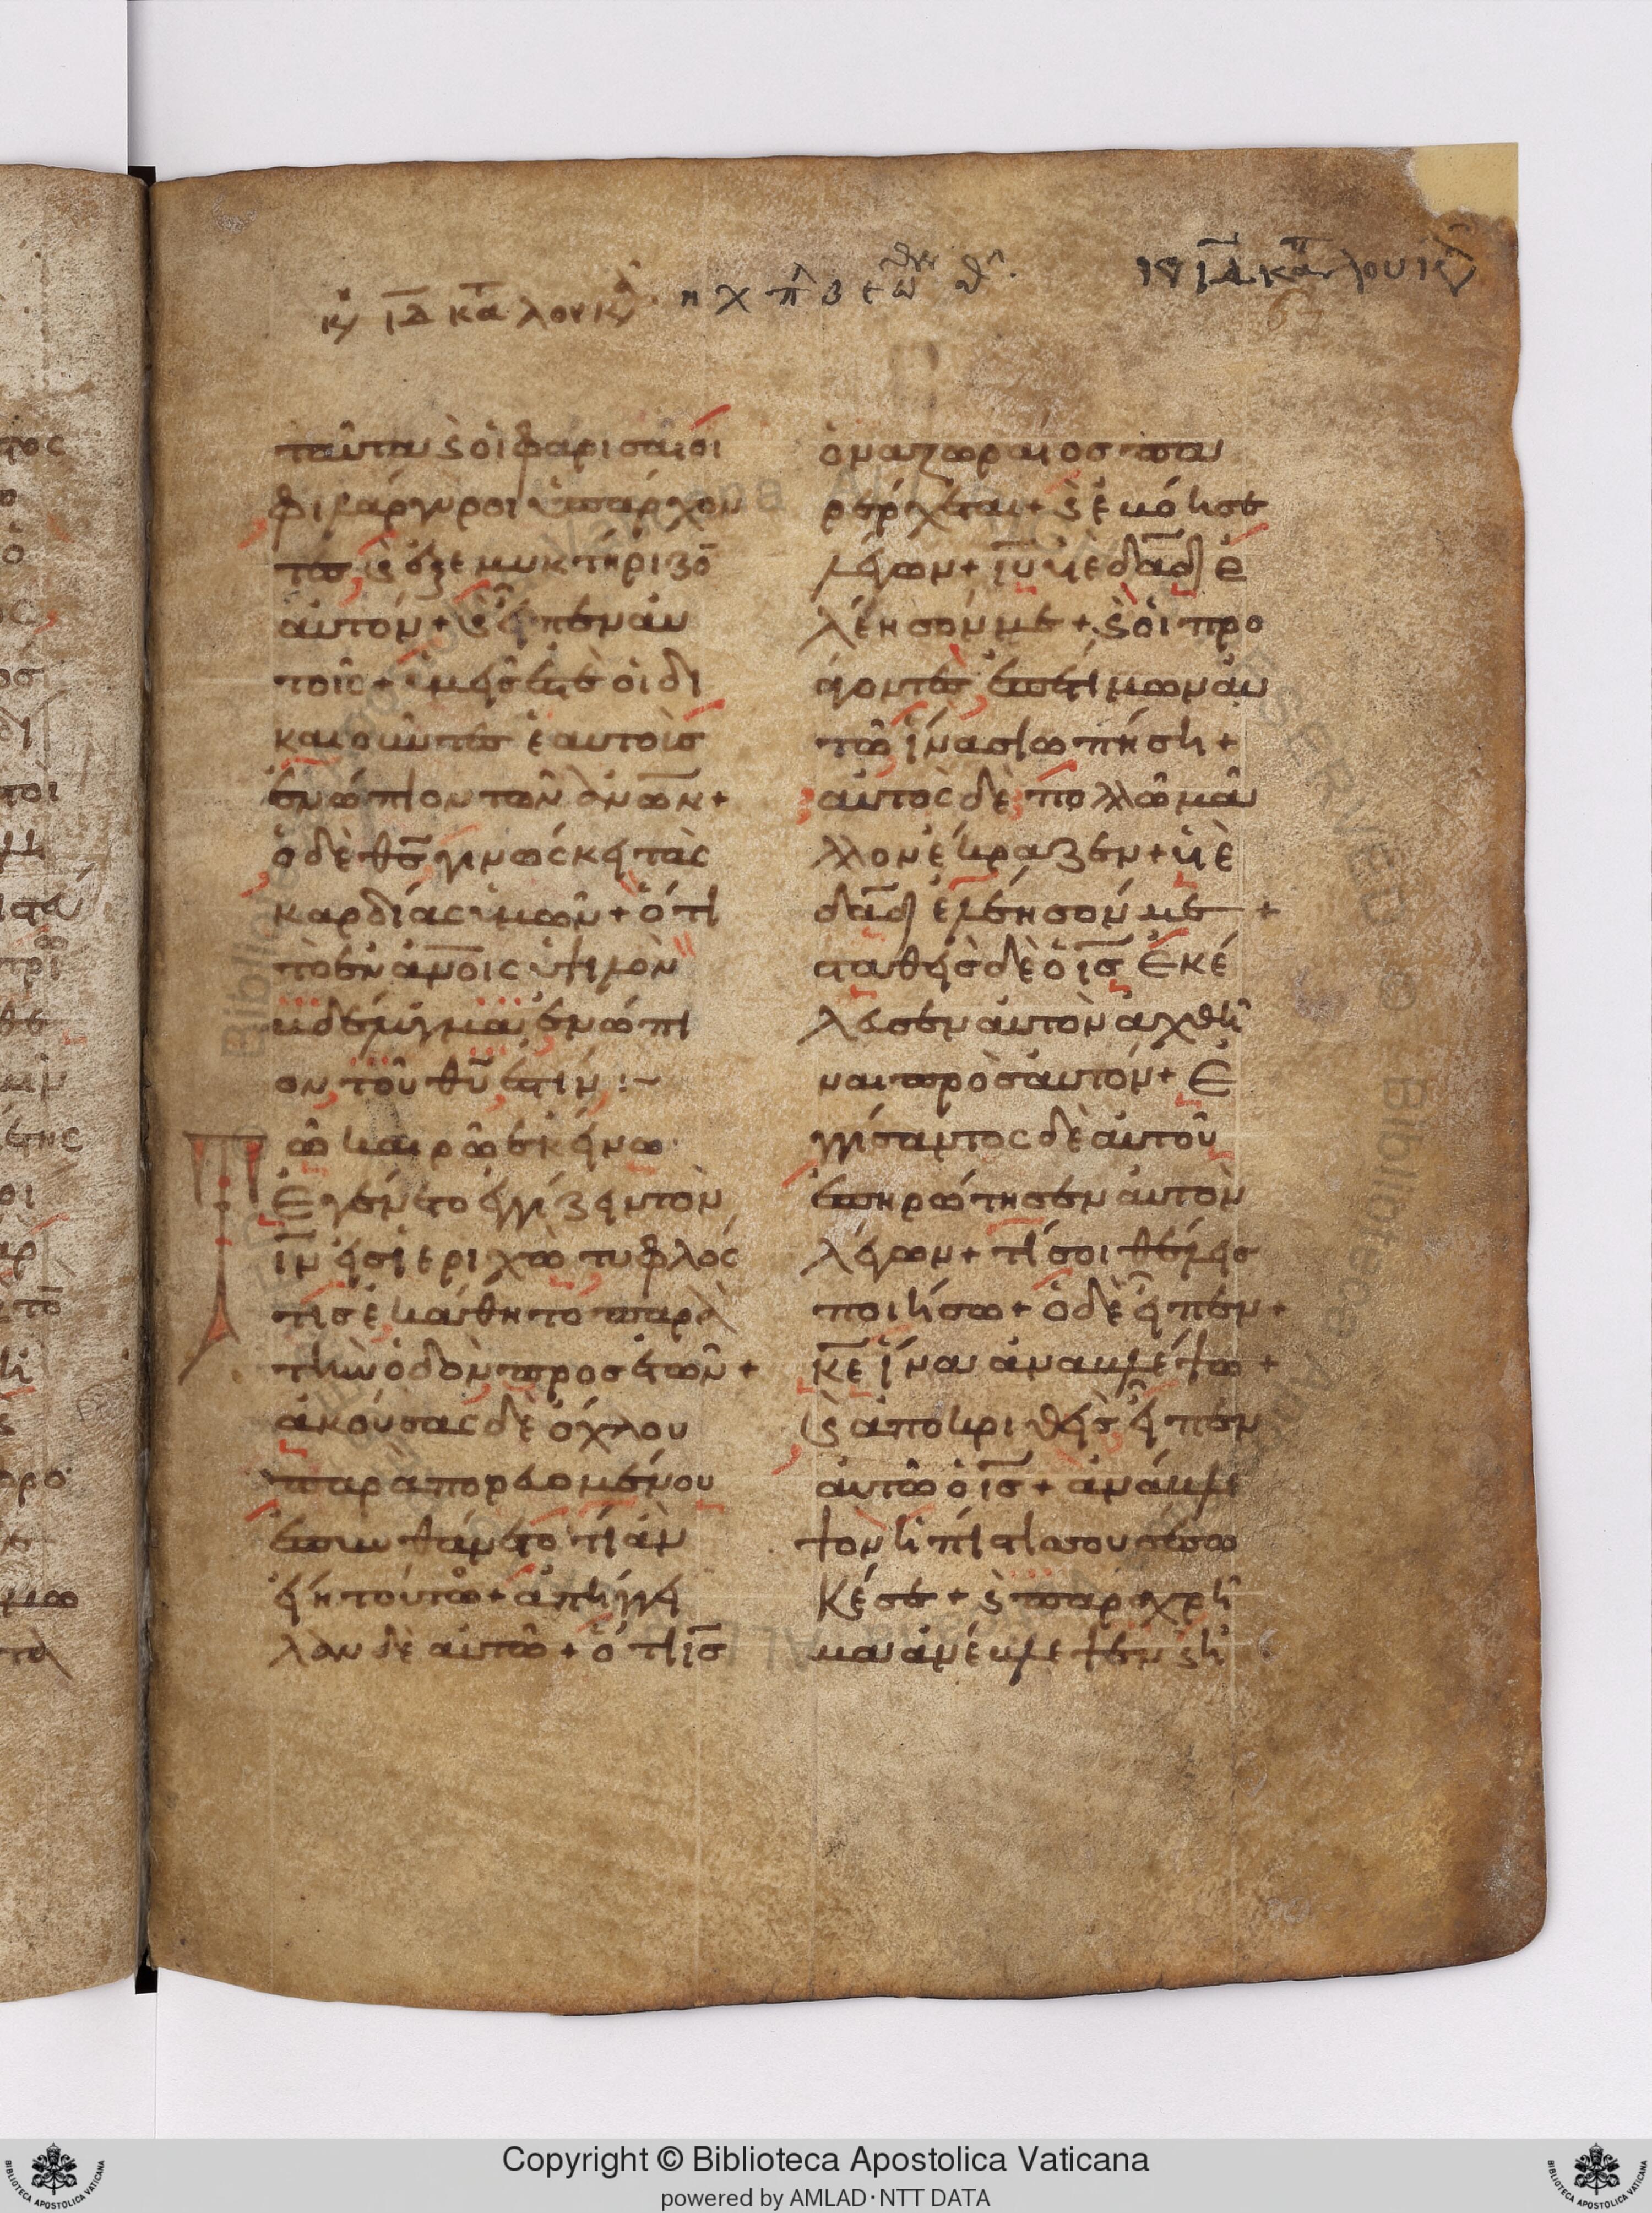 κυ ιδ κα λουκ
ιδ κα λουκ
ταῦτα ϗ οἱ φαρισαῖοι
φιλάργυροι ὑπάρχον
τες ϗ ἐξεμυκτήριζō
αὐτόν + ϗ εἶπεν αὐ
τοῖς + ὑμεῖς ἐστὲ οἱ δι
καιοῦντες ἑαυτοὺς
ἐνώπιον τῶν ἀν̅ω̅ν +
ὁ δὲ θ̅ς̅ γινώσκει τὰς
καρδίας ὑμῶν + ὅτι
τὸ ἐν ἀν̅ο̅ις ὑψηλὸν
βδέλυγμα ἐνώπι
ον τοῦ θ̅υ̅ ἐστιν :~
Τῶ καιρῶ ἐκείνω
Ἐγένετο ἐγγίζειν τὸν
ι̅ν̅ εἰς ἱεριχὼ τυφλός
τις ἐκάθητο παρὰ
τὴν ὁδὸν προσετῶν +
ἀκούσας δὲ ὄχλου
παραπορευομένου
ἐπυνθάνετο τί ἂν
εἴη τοῦτω + ἀπήγγει
λαν δὲ αὐτῶ + ὅτι ι̅ς̅
ὁ ναζωραῖος πα
ρέρχεται + ϗ ἐβόησε
λέγων + ι̅υ̅ υἱὲ δα̅δ̅ ἐ
λέησόν με + ϗ οἱ προ
άγοντες ἐπετίμων αὐ
τῶ ἵνα σιωπήση +
αὐτὸς δὲ πολλῶ μᾶ
λλον ἔκραζεν + υἱὲ
δα̅δ̅ ἐλέησόν με +
σταθεὶς δὲ ὁ ι̅ς̅ ἐκέ
λευσεν αὐτὸν ἀχθῆ
ναι πρὸς αὐτόν + ἐ
γγίσαντος δὲ αὐτοῦ
ἐπηρώτησεν αὐτὸν
λέγων + τί σοι θέλεις
ποιήσω + ὁ δὲ εἶπεν +
κ̅ε̅ ἵνα ἀναβλέψω +
ϗ ἀποκριθεὶς εἶπεν
αὐτῶ ὁ ι̅ς̅ + ἀνάβλε
ψον ἡ πίστις σου σέσω
κέ σε + ϗ παραχρῆ
μα ἀνέβλεψεν ϗ ἠ
Copyright © Biblioteca Apostolica Vaticana
powered by AMLAD·NTT DATA